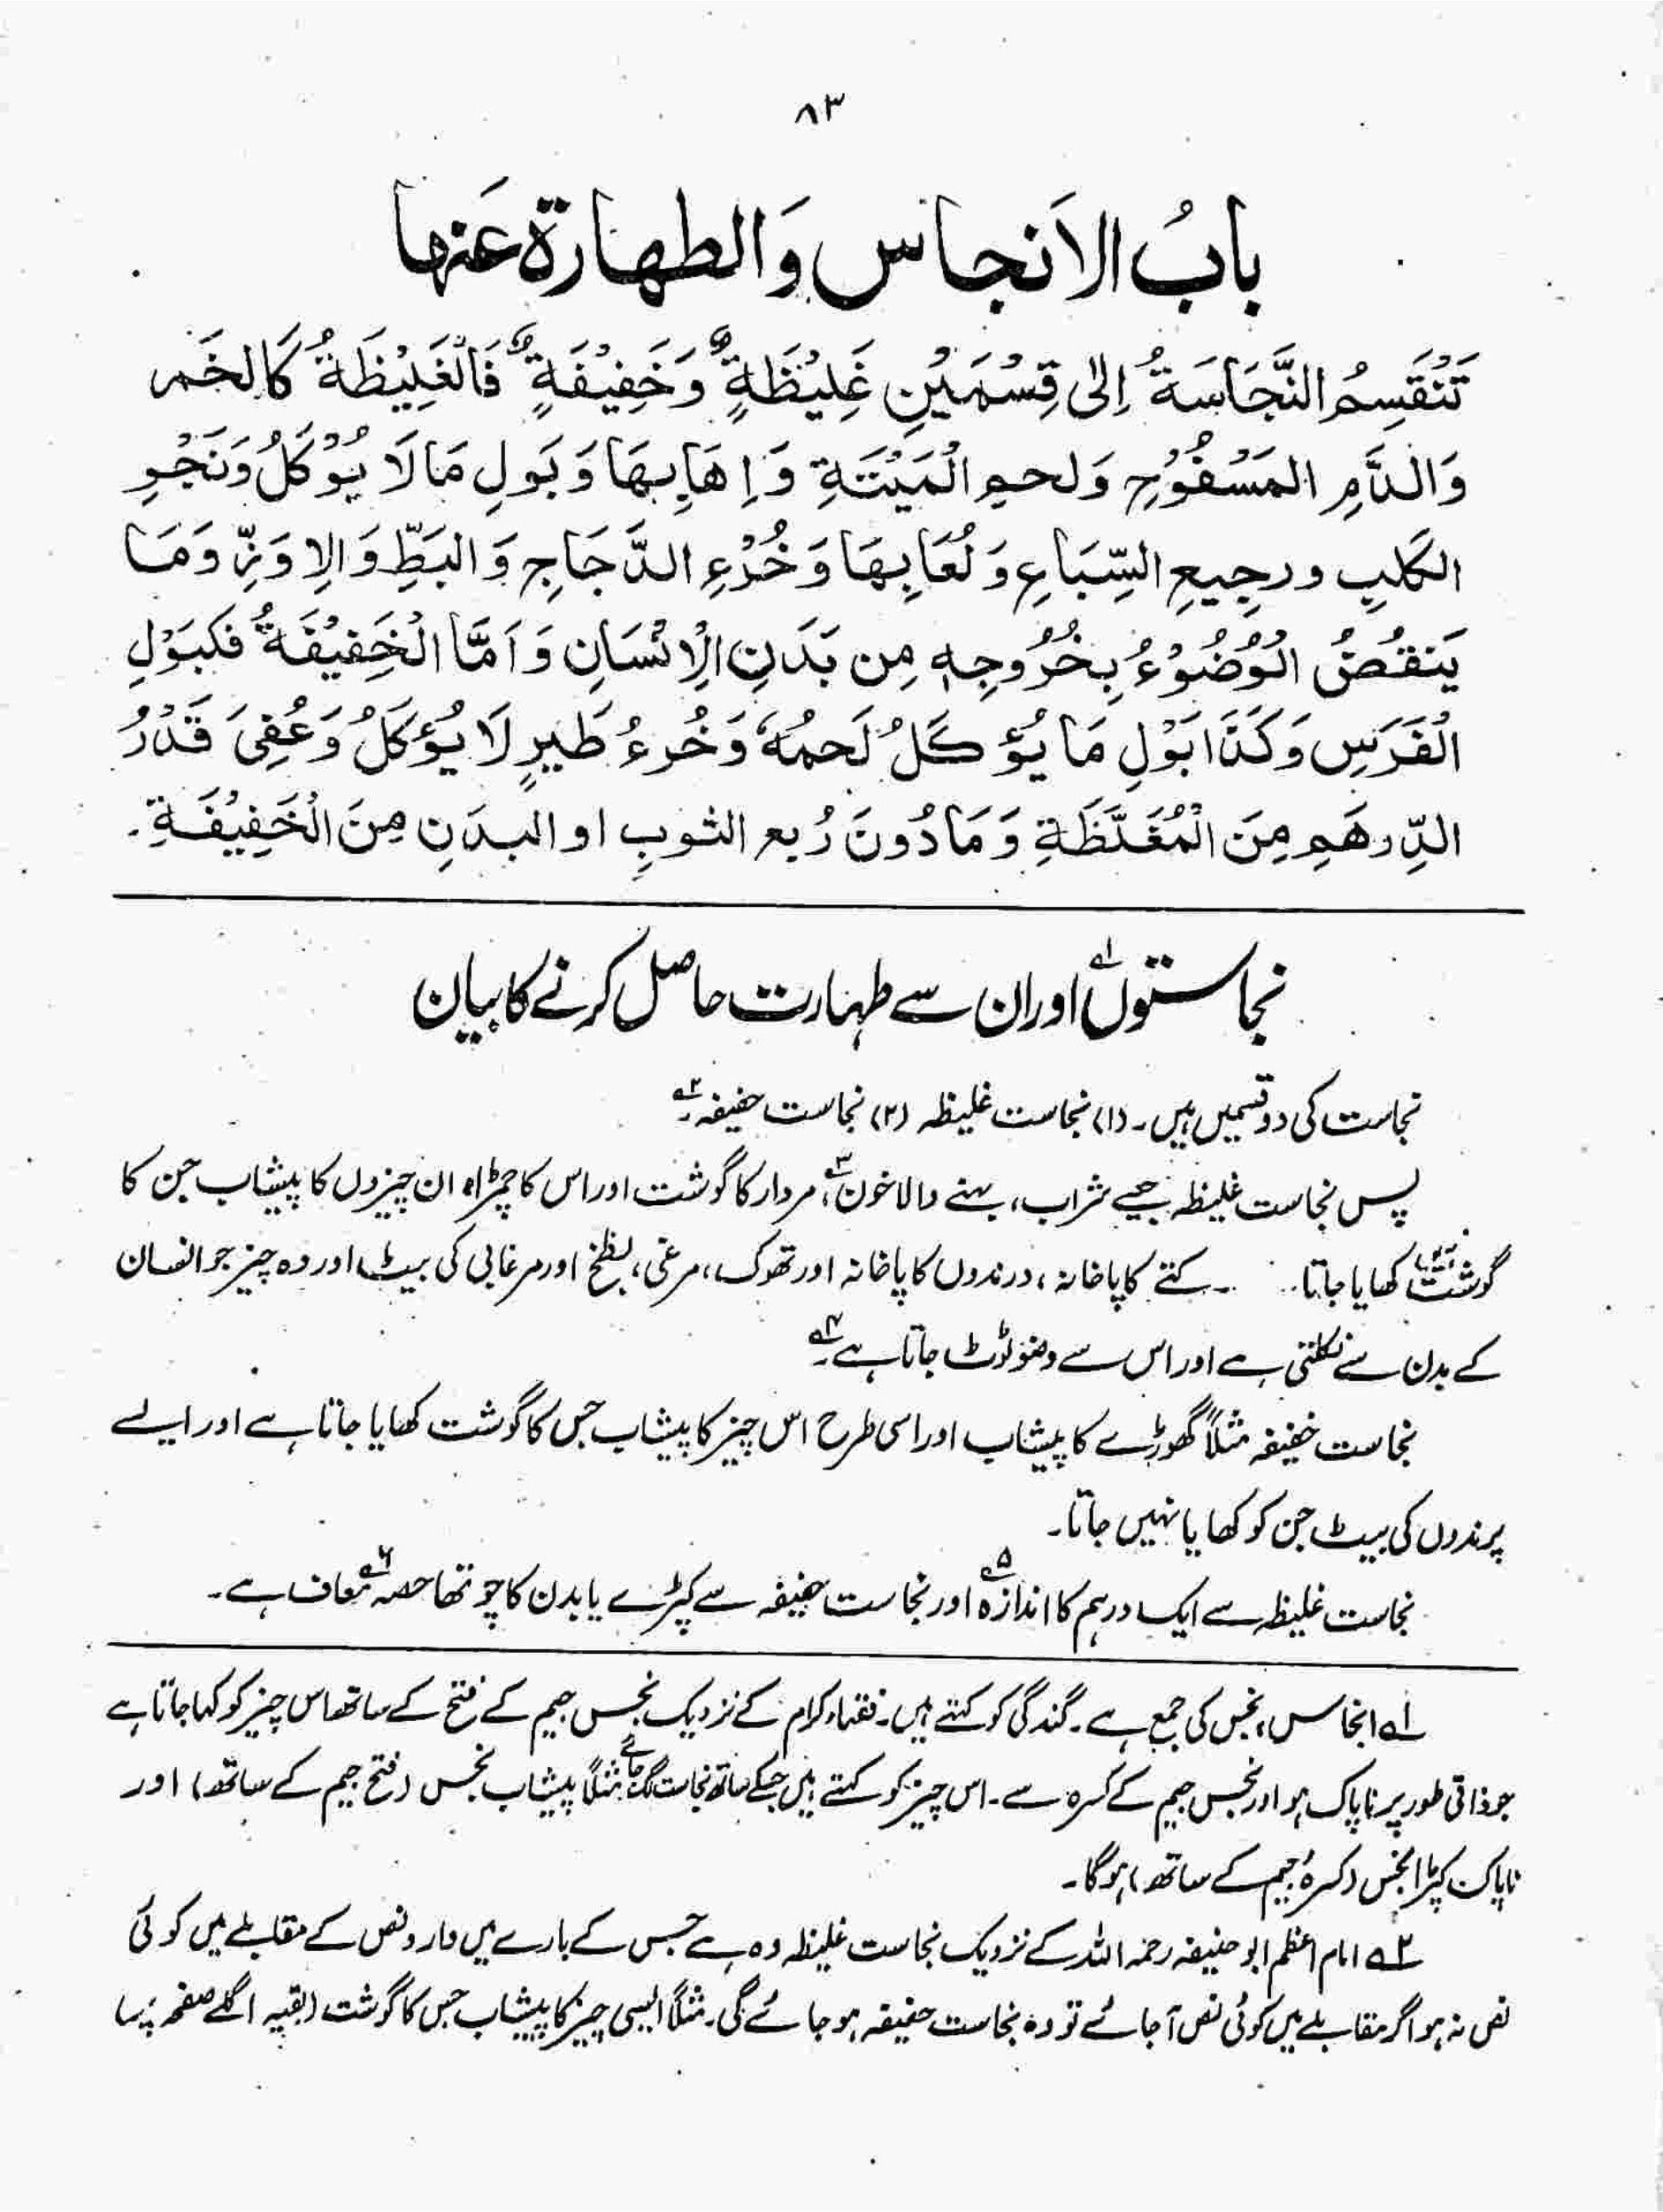 ۸۳
بابُ الاَنجاس وَالطهارة عَنها
تَنْقَسِمُ النَّجَاسَةُ اِلٰی قِسْمَیْنِ غَلِیْظَةٍ وَخَفِیْفَةٍ فَالْغَلِیْظَةُ کَالخَمر
وَالدَّمِ المَسْفُوْحِ وَلحمِ الْمَیْتَةِ وَاِهَابِهَا وَبَولِ مَالَا یُؤْکَلُ وَنَجْوِ
الکَلبِ ورجِیعِ السِّبَاعِ وَلُعَابِهَا وَخُرْءِ الدَّجَاجِ وَالبَطِّ وَالِاوَزِّ وَمَا
یَنقُضُ الْوُضُوْءُ بِخُرُوجِهٖ مِن بَدَنِ الْاِنْسَانِ وَاَمَّا الْخَفِیْفَةُ فکَبَوْلِ
الْفَرَسِ وَکَذَا بَوْلِ مَا یُؤکَلُ لَحمُهٗ وَخُرءُ طَیرٍ لَا یُؤکَلُ وَعُفِیَ قَدْرُ
الدِّرهَمِ مِنَ الْمُغَلَّظَةِ وَمَا دُونَ رُبع الثوبِ او البدَنِ مِنَ الْخَفِیْفَةِ۔
نجاستوں۱؎ اور ان سے طہارت حاصل کرنے کا بیان
نجاست کی دو قسمیں ہیں۔ (۱) نجاست غلیظہ (۲) نجاست خفیفہ۲؎۔
پس نجاست غلیظہ جیسے شراب، بہنے والا خون۳؎، مردار کا گوشت اور اس کا چمڑا، ان چیزوں کا پیشاب جن کا
گوشت نہیں کھایا جاتا۔ کتے کا پاخانہ، درندوں کا پاخانہ اور تھوک، مرغی، بطخ اور مرغابی کی بیٹ اور وہ چیز جو انسان
کے بدن سے نکلتی ہے اور اس سے وضو ٹوٹ جاتا ہے۴؎۔
نجاست خفیفہ مثلاً گھوڑے کا پیشاب اور اسی طرح اس چیز کا پیشاب جس کا گوشت کھایا جاتا ہے اور ایسے
پرندوں کی بیٹ جن کو کھایا نہیں جاتا۔
نجاست غلیظہ سے ایک درہم کا اندازہ۵؎ اور نجاست خفیفہ سے کپڑے یا بدن کا چوتھا حصہ۶؎ معاف ہے۔
۱؎ انجاس، نجس کی جمع ہے۔ گندگی کو کہتے ہیں۔ فقہاء کرام کے نزدیک نجس جیم کے فتح کے ساتھ اس چیز کو کہا جاتا ہے
جو ذاتی طور پر ناپاک ہو اور نجس جیم کے کسرہ سے۔ اس چیز کو کہتے ہیں جسکے ساتھ نجاست لگ جائے مثلاً پیشاب نجس (فتح جیم کے ساتھ) اور
ناپاک کپڑا نجس (کسرۂ جیم کے ساتھ) ہو گا۔
۲؎ امام اعظم ابو حنیفہ رحمہ اللہ کے نزدیک نجاست غلیظہ وہ ہے جس کے بارے میں وارد نص کے مقابلے میں کوئی
نص نہ ہو اگر مقابلے میں کوئی نص آجائے تو وہ نجاست خفیفہ ہو جائے گی۔ مثلاً ایسی چیز کا پیشاب جس کا گوشت (بقیہ اگلے صفحہ پر)